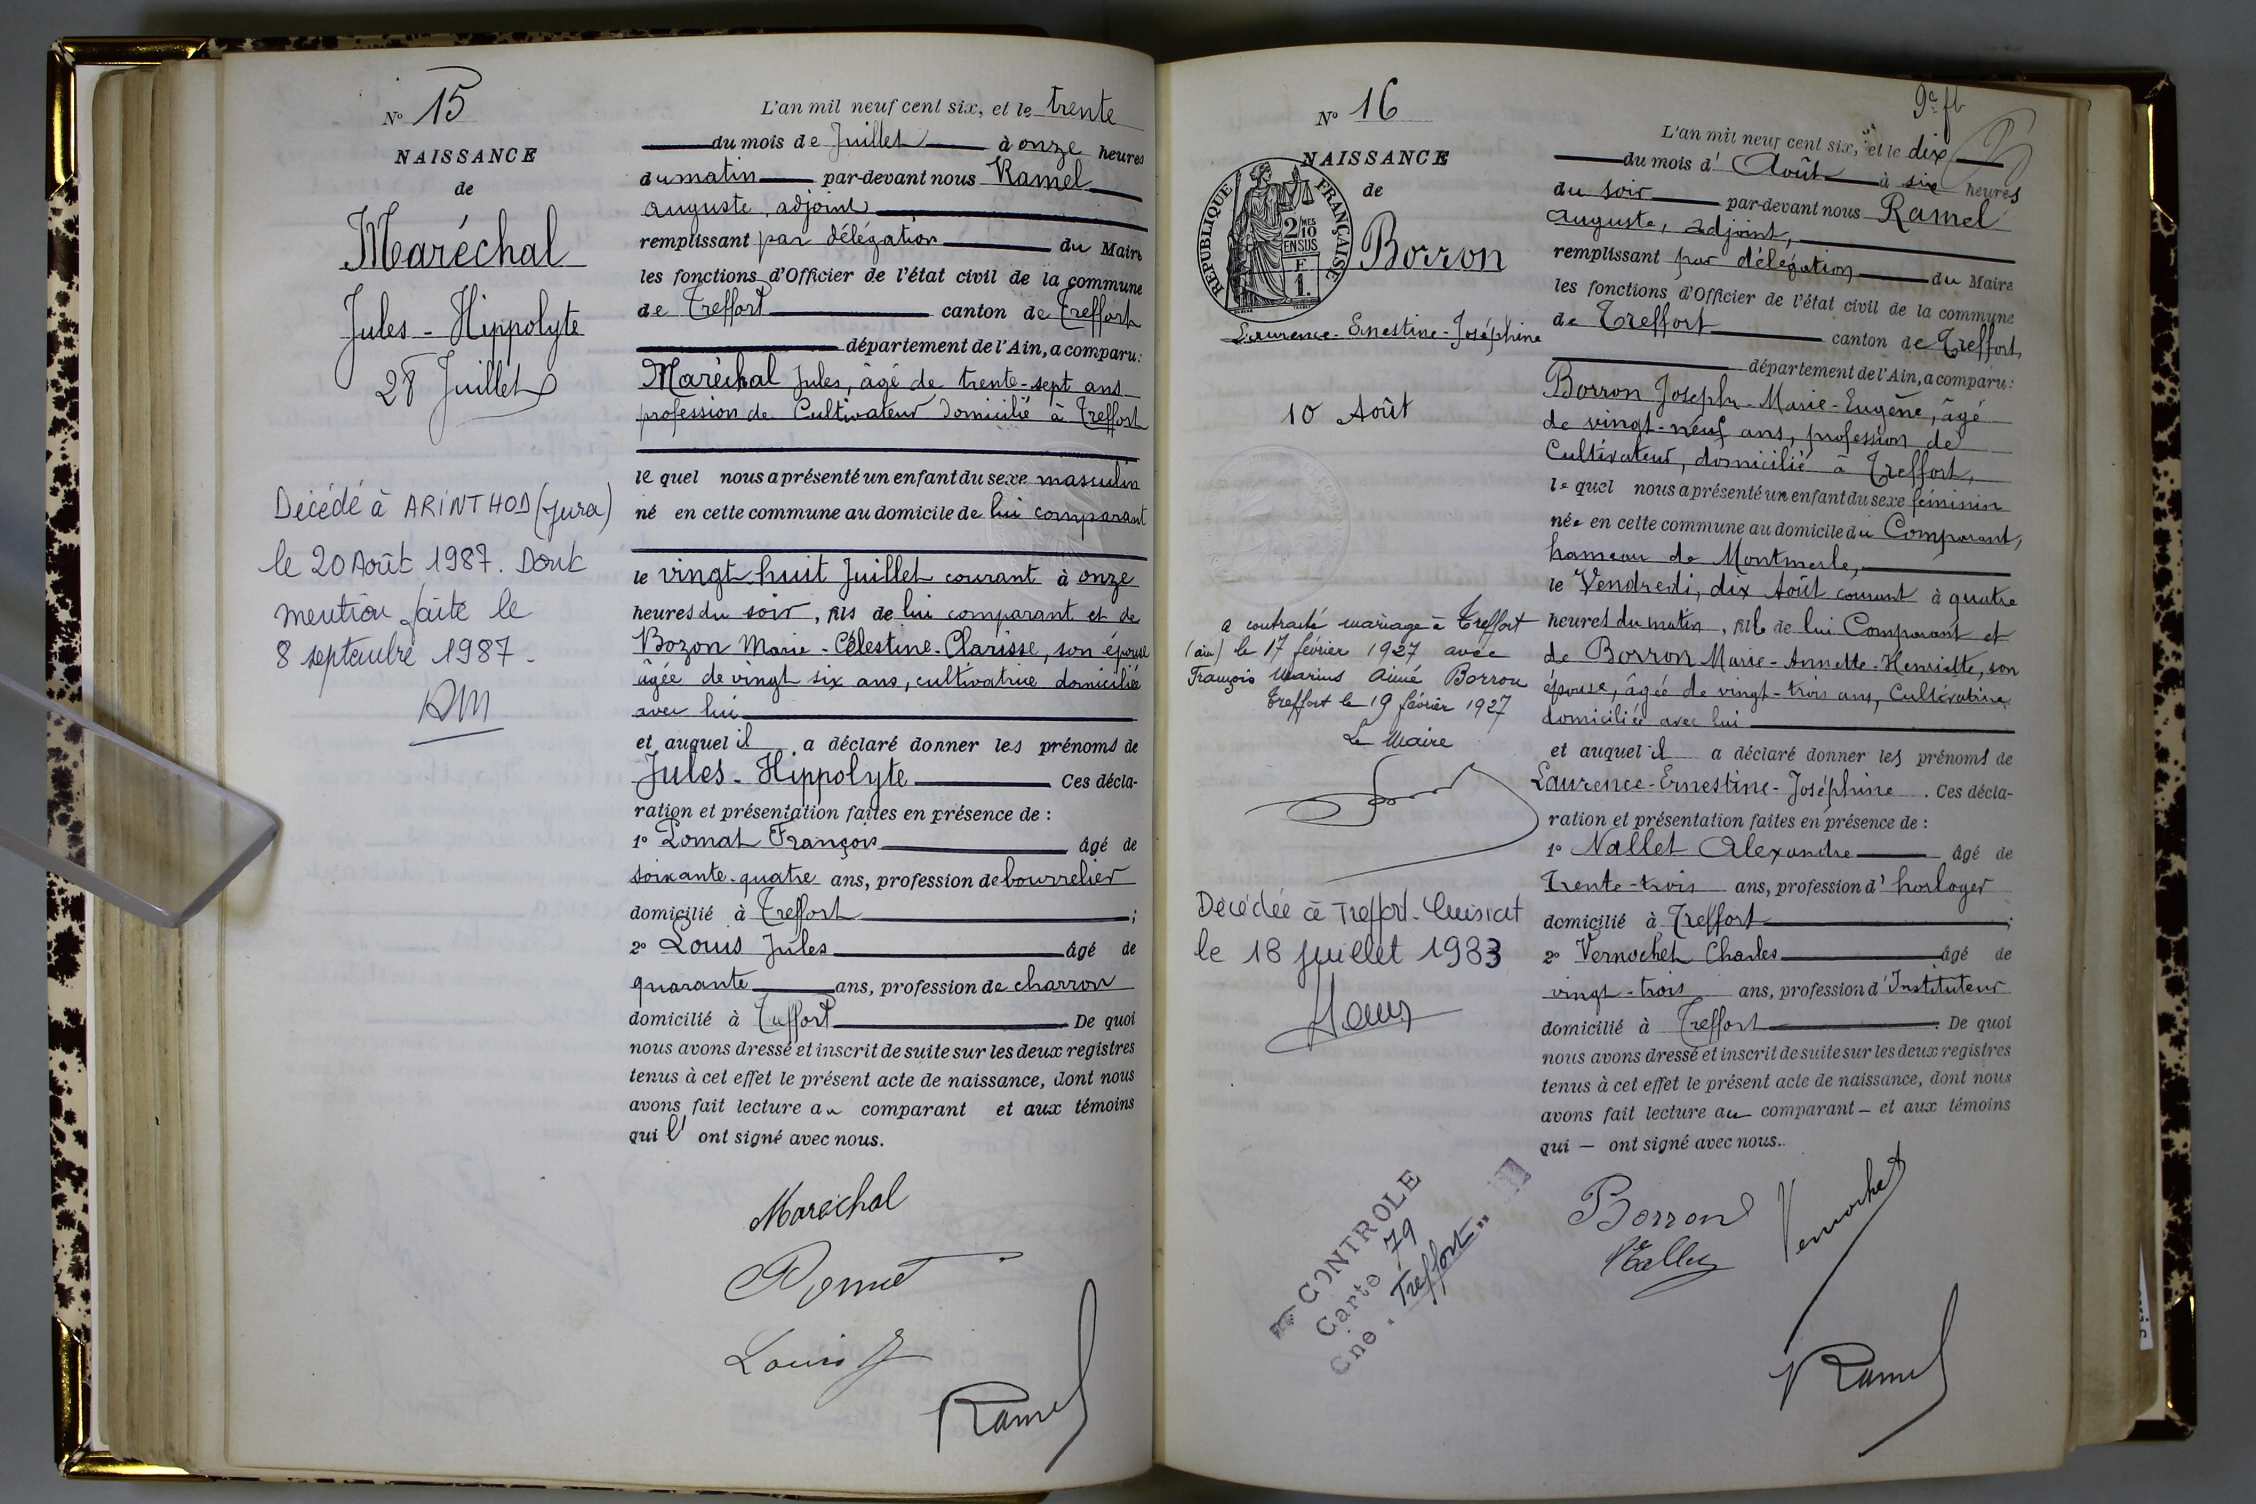 N° 15
NAISSANCE
de
Maréchal
Jules - Hippolyte
28 Juillet
Décédé à ARINTHOD (Jura)
le 20 Août 1987. Dont
mention faite le
8 septembre 1987.
L'an mil neuf cent six, et le trente
du mois de Juillet à onze heures
du matin par-devant nous Ramel
Auguste, adjoint
remplissant par délégation du Maire
les fonctions d'Officier de l'état civil de la commune
de Treffort canton de Treffort
département de l'Ain, a comparu:
Maréchal Jules, âgé de trente-sept ans
profession de Cultivateur domicilié à Treffort
lequel nous a présenté un enfant du sexe masculin
né en cette commune au domicile de lui comparant
le vingt huit Juillet courant à onze
heures du soir, fils de lui comparant et de
Bozon Marie-Célestine-Clarisse, son épouse
âgée de vingt six ans, cultivatrice domiciliée
avec lui
et auquel il a déclaré donner les prénoms de
Jules-Hippolyte Ces décla-
ration et présentation faites en présence de :
1° Pomat François âgé de
soixante-quatre ans, profession de bourrelier
domicilié à Treffort ;
2° Louis Jules âgé de
quarante ans, profession de charron
domicilié à Treffort De quoi
nous avons dressé et inscrit de suite sur les deux registres
tenus à cet effet le présent acte de naissance, dont nous
avons fait lecture au comparant et aux témoins
qui l' ont signé avec nous.
Maréchal
Louis J
Ramel
N° 16
NAISSANCE
de
RÉPUBLIQUE FRANÇAISE
2/10 MES
EN SUS
F
1.
Borron
Laurence-Ernestine-Joséphine
10 Août
a contracté mariage à Treffort
(ain) le 17 février 1927 avec
François Marius Aimé Borron
Treffort le 19 février 1927
Le Maire
Décédée à Treffort-Cuisiat
le 18 juillet 1983
CONTROLE
Carte 79
Cne . Treffort
L'an mil neuf cent six, et le dix
du mois d' Août à six heures
du soir par-devant nous Ramel
Auguste, adjoint,
remplissant par délégation du Maire
les fonctions d'Officier de l'état civil de la commune
de Treffort canton de Treffort,
département de l'Ain, a comparu:
Borron Joseph-Marie-Eugène, âgé
de vingt-neuf ans, profession de
Cultivateur, domicilié à Treffort,
lequel nous a présenté un enfant du sexe féminin
née en cette commune au domicile du Comparant,
hameau de Montmerle,
le Vendredi, dix Août courant à quatre
heures du matin, fille de lui Comparant et
de Borron Marie-Annette-Henriette, son
épouse, âgée de vingt-trois ans, Cultivatrice
domiciliée avec lui
et auquel il a déclaré donner les prénoms de
Laurence-Ernestine-Joséphine. Ces décla-
ration et présentation faites en présence de :
1° Nallet Alexandre âgé de
Trente-trois ans, profession d' horloger
domicilié à Treffort ;
2° Vernochet Charles âgé de
vingt-trois ans, profession d'Instituteur
domicilié à Treffort. De quoi
nous avons dressé et inscrit de suite sur les deux registres
tenus à cet effet le présent acte de naissance, dont nous
avons fait lecture au comparant — et aux témoins
qui — ont signé avec nous.
Borron Vernochet
Nallet
Ramel